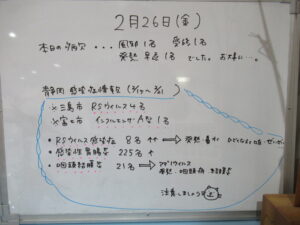 2月26日(金)
本日の欠席・・・風邪1名 受診1名
発熱 早退1名 でした。お大事に…。
静岡 感染症情報
※三島市 RSウイルス4名
※富士市 インフルエンザA型1名
・RSウイルス感染症 8名 ⇒ 発熱・鼻汁
・感染性胃腸炎 225名
・咽頭結膜熱 21名 → アデノウイルス
発熱・咽頭痛・結膜炎
注意しましょう